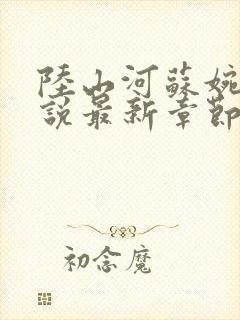 陸山河蘇婉
說最新章節
初念魔